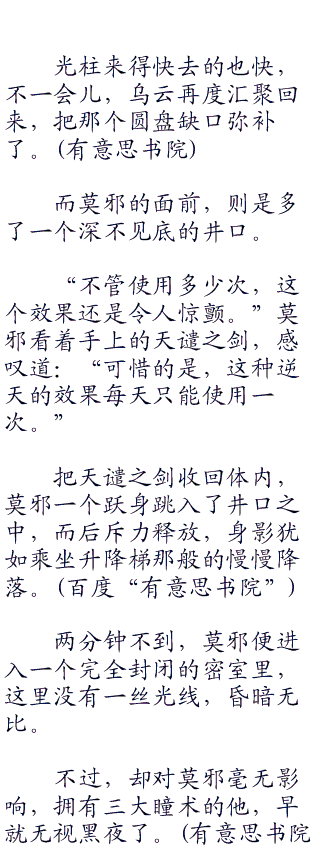 光柱来得快去的也快，
不一会儿，乌云再度汇聚回
来，把那个圆盘缺口弥补
了。(有意思书院)
而莫邪的面前，则是多
了一个深不见底的井口。
“不管使用多少次，这
个效果还是令人惊颤。”莫
邪看着手上的天谴之剑，感
叹道：“可惜的是，这种逆
天的效果每天只能使用一
次。”
把天谴之剑收回体内，
莫邪一个跃身跳入了井口之
中，而后斥力释放，身影犹
如乘坐升降梯那般的慢慢降
落。(百度“有意思书院”)
两分钟不到，莫邪便进
入一个完全封闭的密室里，
这里没有一丝光线，昏暗无
比。
不过，却对莫邪毫无影
响，拥有三大瞳术的他，早
就无视黑夜了。(有意思书院